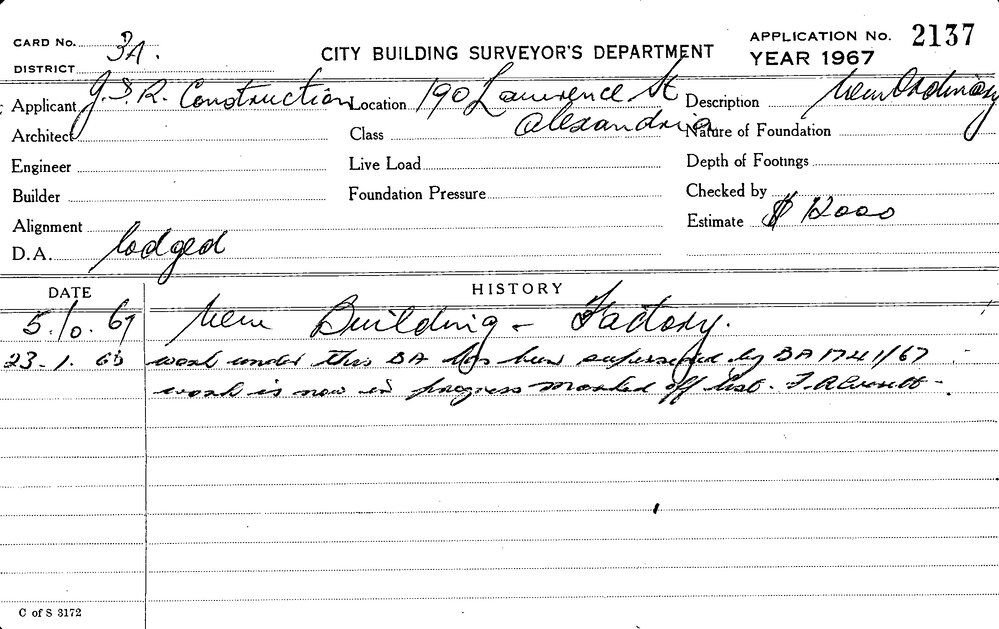 CARD No. 3A.
DISTRICT
CITY BUILDING SURVEYOR'S DEPARTMENT
APPLICATION No. 2137
YEAR 1967
Applicant J.S.R. Construction Location 190 Lawrence St Alexandria Description New Ordinary
Architect Class Nature of Foundation
Engineer Live Load Depth of Footings
Builder Foundation Pressure Checked by
Alignment Estimate $ 12000
D.A. lodged
DATE HISTORY
5.10.67 New Building - Factory.
23.1.68 work under this BA has been superseded by BA 1741/67
work is now in progress marked off list.
C of S 3172